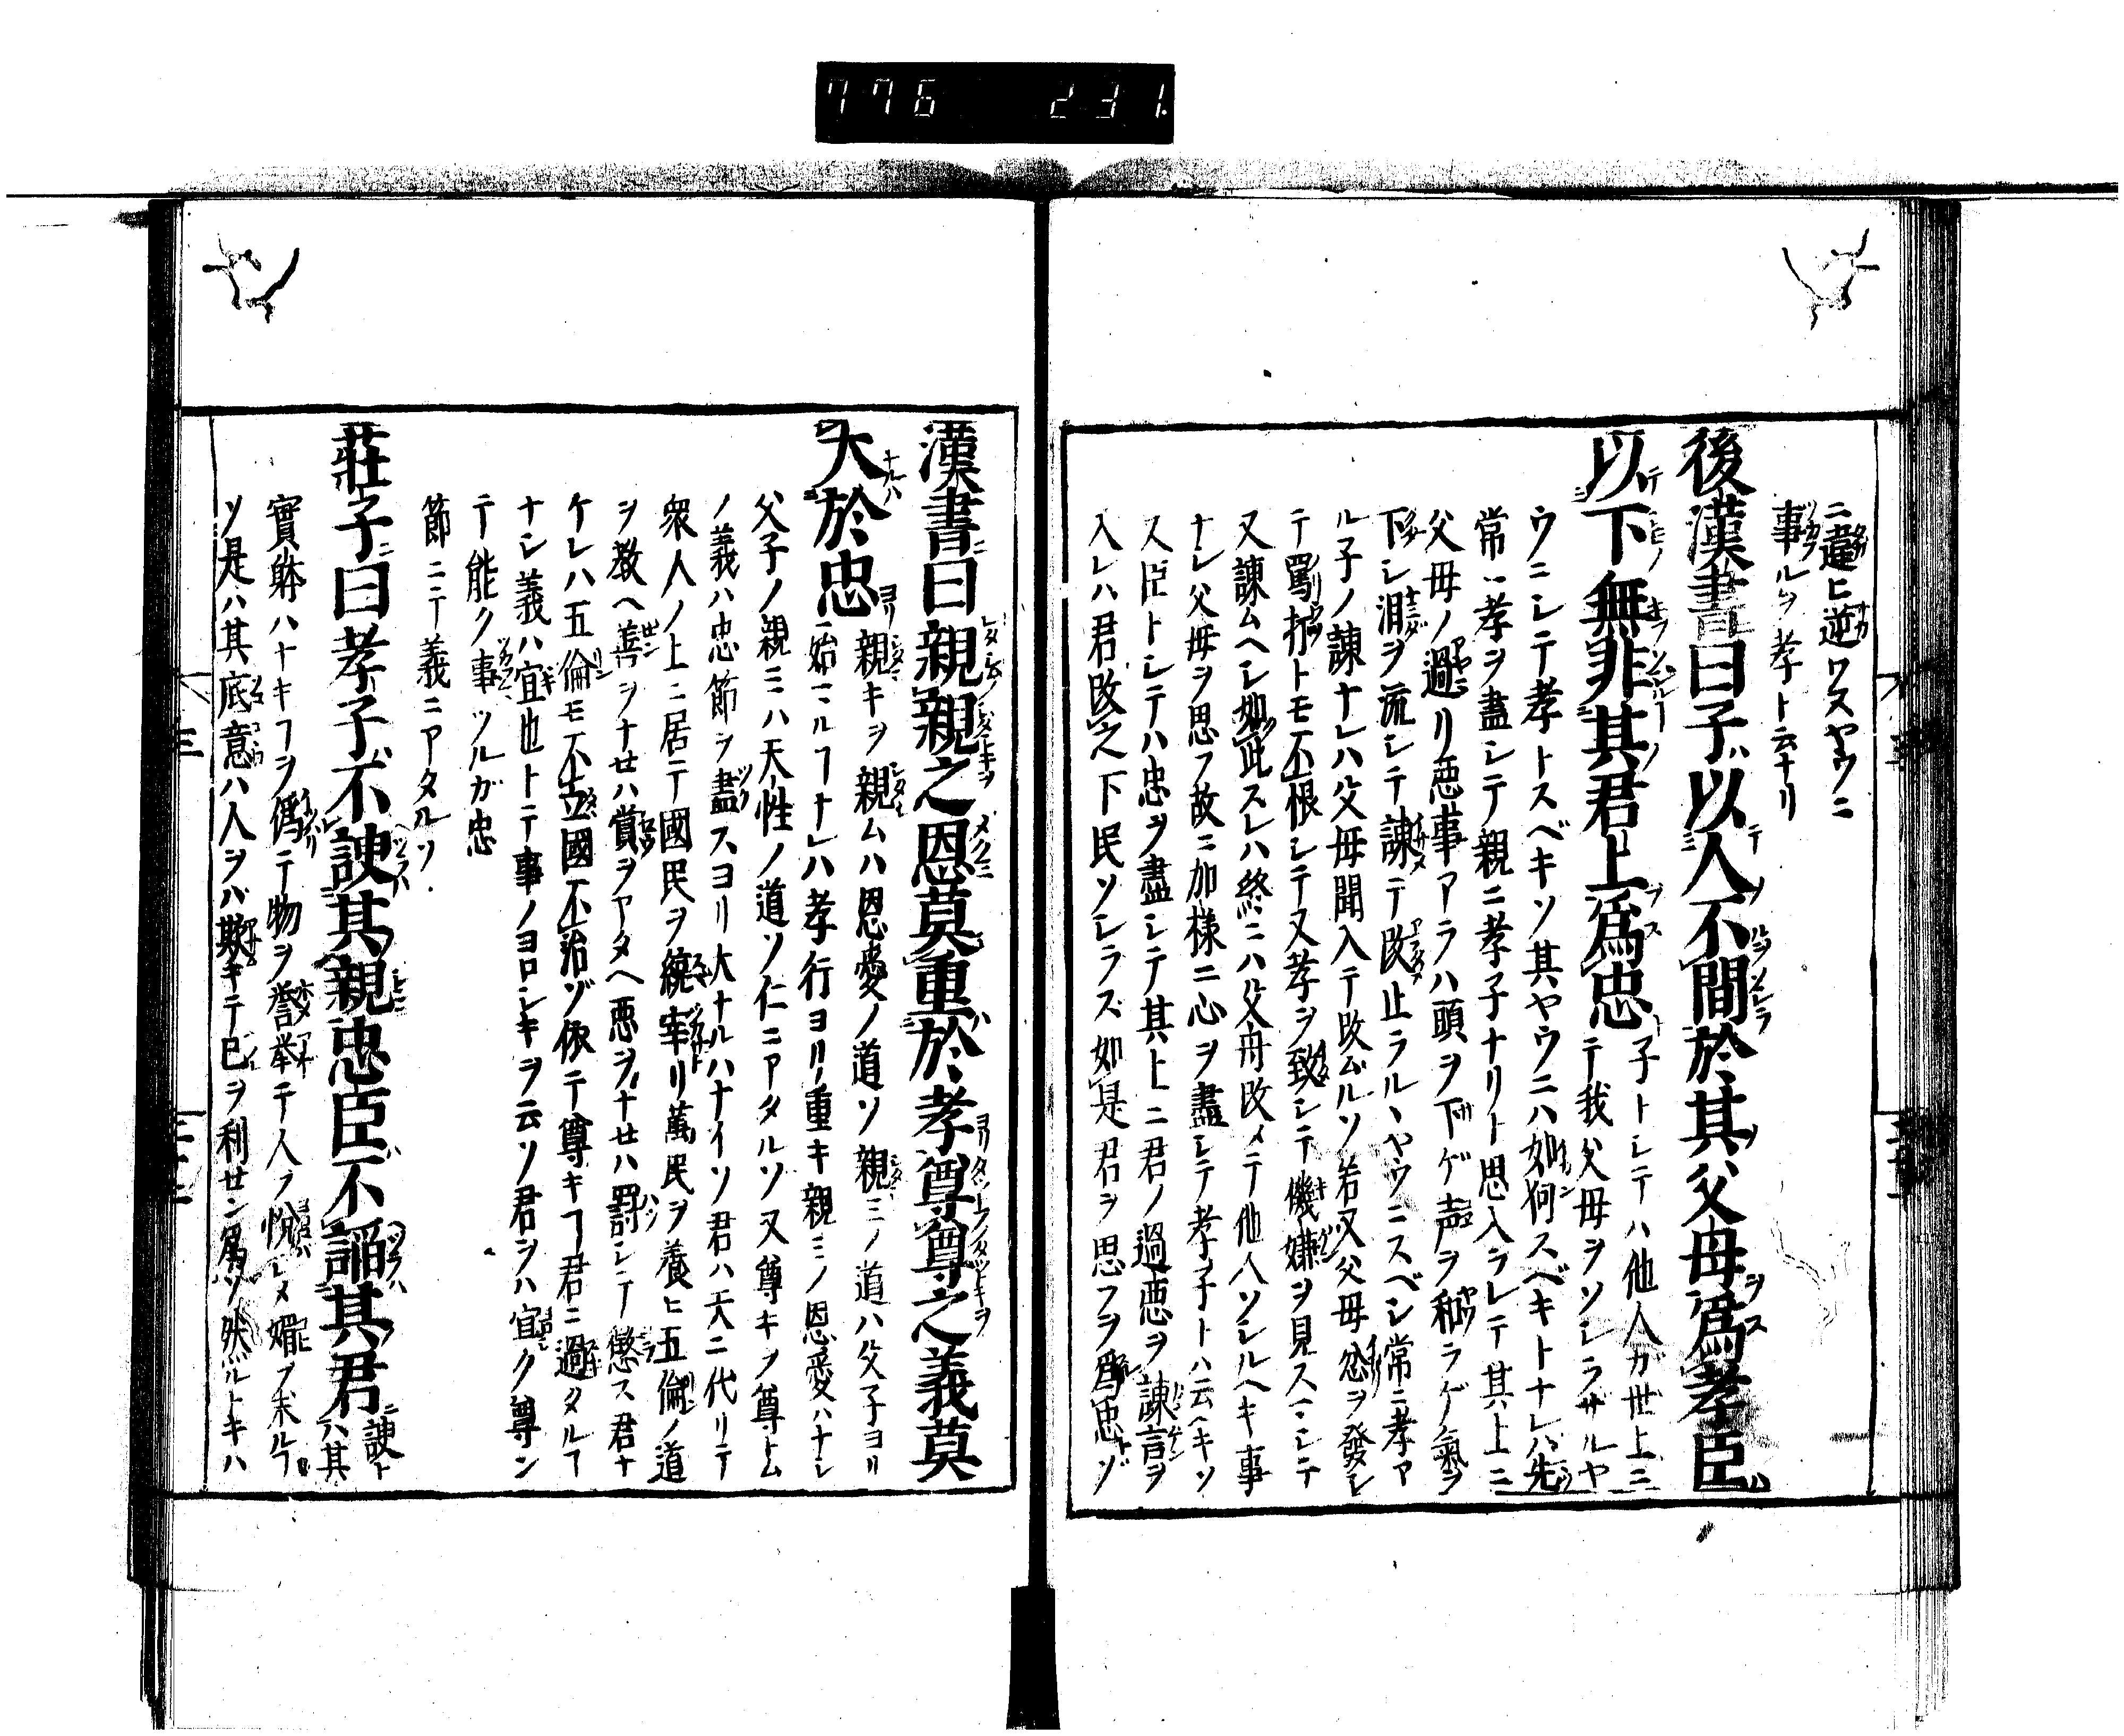 776 231.
ニ違ヒ逆ワヌヤウニ
事ルヲ孝ト云ナリ
後漢書曰子以人不間於其父母爲孝臣
以下無非其君上爲忠
子トシテハ他人ガ世上ニ
テ我父母ヲソシラザルヤ
ウニシテ孝トスベキソ其ヤウニハ如何スベキトナレハ先
常ニ孝ヲ盡シテ親ニ孝子ナリト思入ラレテ其上ニ
父母ノ過リ悪事アラハ頭ヲ下ゲ声ヲ和ラゲ氣ヲ
下シ涙ヲ流シテ諌テ改止ラルヽヤウニスベシ常ニ孝ア
ル子ノ諌ナレハ父母聞入テ改ムルソ若又父母忿ヲ發シ
テ罵打トモ不恨シテ又孝ヲ致シテ機嫌ヲ見スマシテ
又諌ムヘシ如此スレハ終ニハ父母改メテ他人ソシルヘキ事
ナシ父母ヲ思フ故ニ加様ニ心ヲ盡シテ孝子トハ云ヘキソ
ス臣トシテハ忠ヲ盡シテ其上ニ君ノ過悪ヲ諌言ヲ
入レハ君改之下民ソシラズ如是君ヲ思フヲ爲忠トゾ
漢書曰親親之恩莫重於孝尊尊之義莫
大於忠
親キヲ親ムハ恩愛ノ道ソ親ミノ道ハ父子ヨリ
始マルヿナレハ孝行ヨリ重キ親ミノ恩愛ハナシ
父子ノ親ミハ天性ノ道ソ仁ニアタルソ又尊キヲ尊トム
ノ義ハ忠節ヲ盡スヨリ大ナルハナイソ君ハ天ニ代リテ
衆人ノ上ニ居テ國民ヲ統宰リ萬民ヲ養ヒ五倫ノ道
ヲ教ヘ善ヲナセハ賞ヲアタヘ悪ヲナセハ罸シテ懲ス君ナ
ケレハ五倫モ不立國不治ゾ依テ尊キヿ君ニ過タルヿ
ナシ義ハ宜也トテ事ノヨロシキヲ云ソ君ヲハ宜ク尊ン
テ能ク事ツルガ忠
節ニテ義ニアタルソ
莊子曰孝子不諛其親忠臣不謟其君
諛ト
ハ其
實躰ハナキヿヲ偽テ物ヲ誉挙テ人ヲ悦シメ媚ヲ求ルヿ
ソ是ハ其底意ハ人ヲバ欺キテ已ヲ利セン為ソ然ルトキハ
三